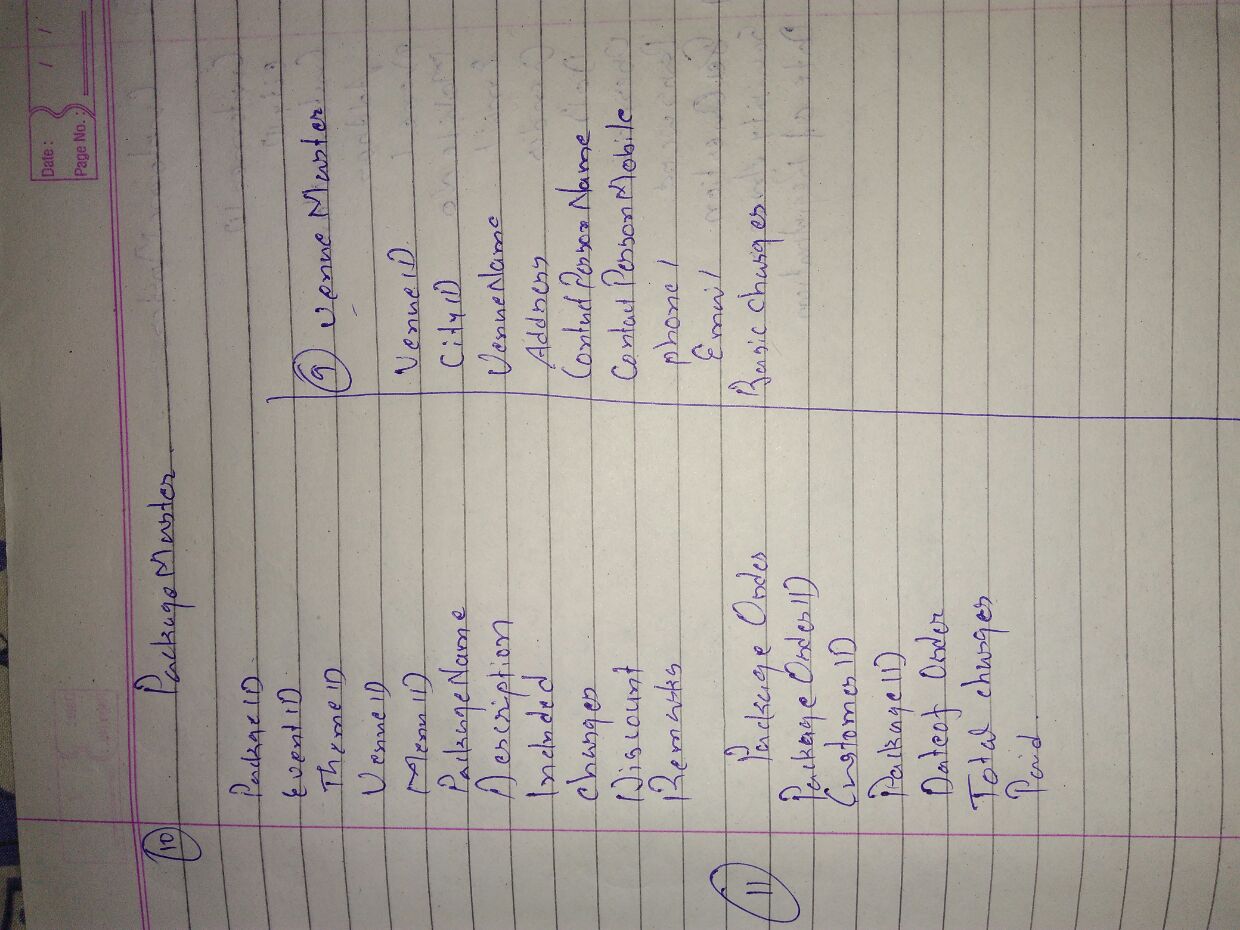 Date : / /
Page No. :
10 Package Master
PackageID
EventID
ThemeID
VenueID
MenuID
PackageName
Description
Included
Charges
Discount
Remarks
11 Package Order
Package OrderID
CustomerID
PackageID
Dateof Order
Total charges
Paid.
9 Venue Master
VenueID
CityID
VenueName
Address
ContactPersonName
Contact PersonMobile
phone1
Email
Basic Charges